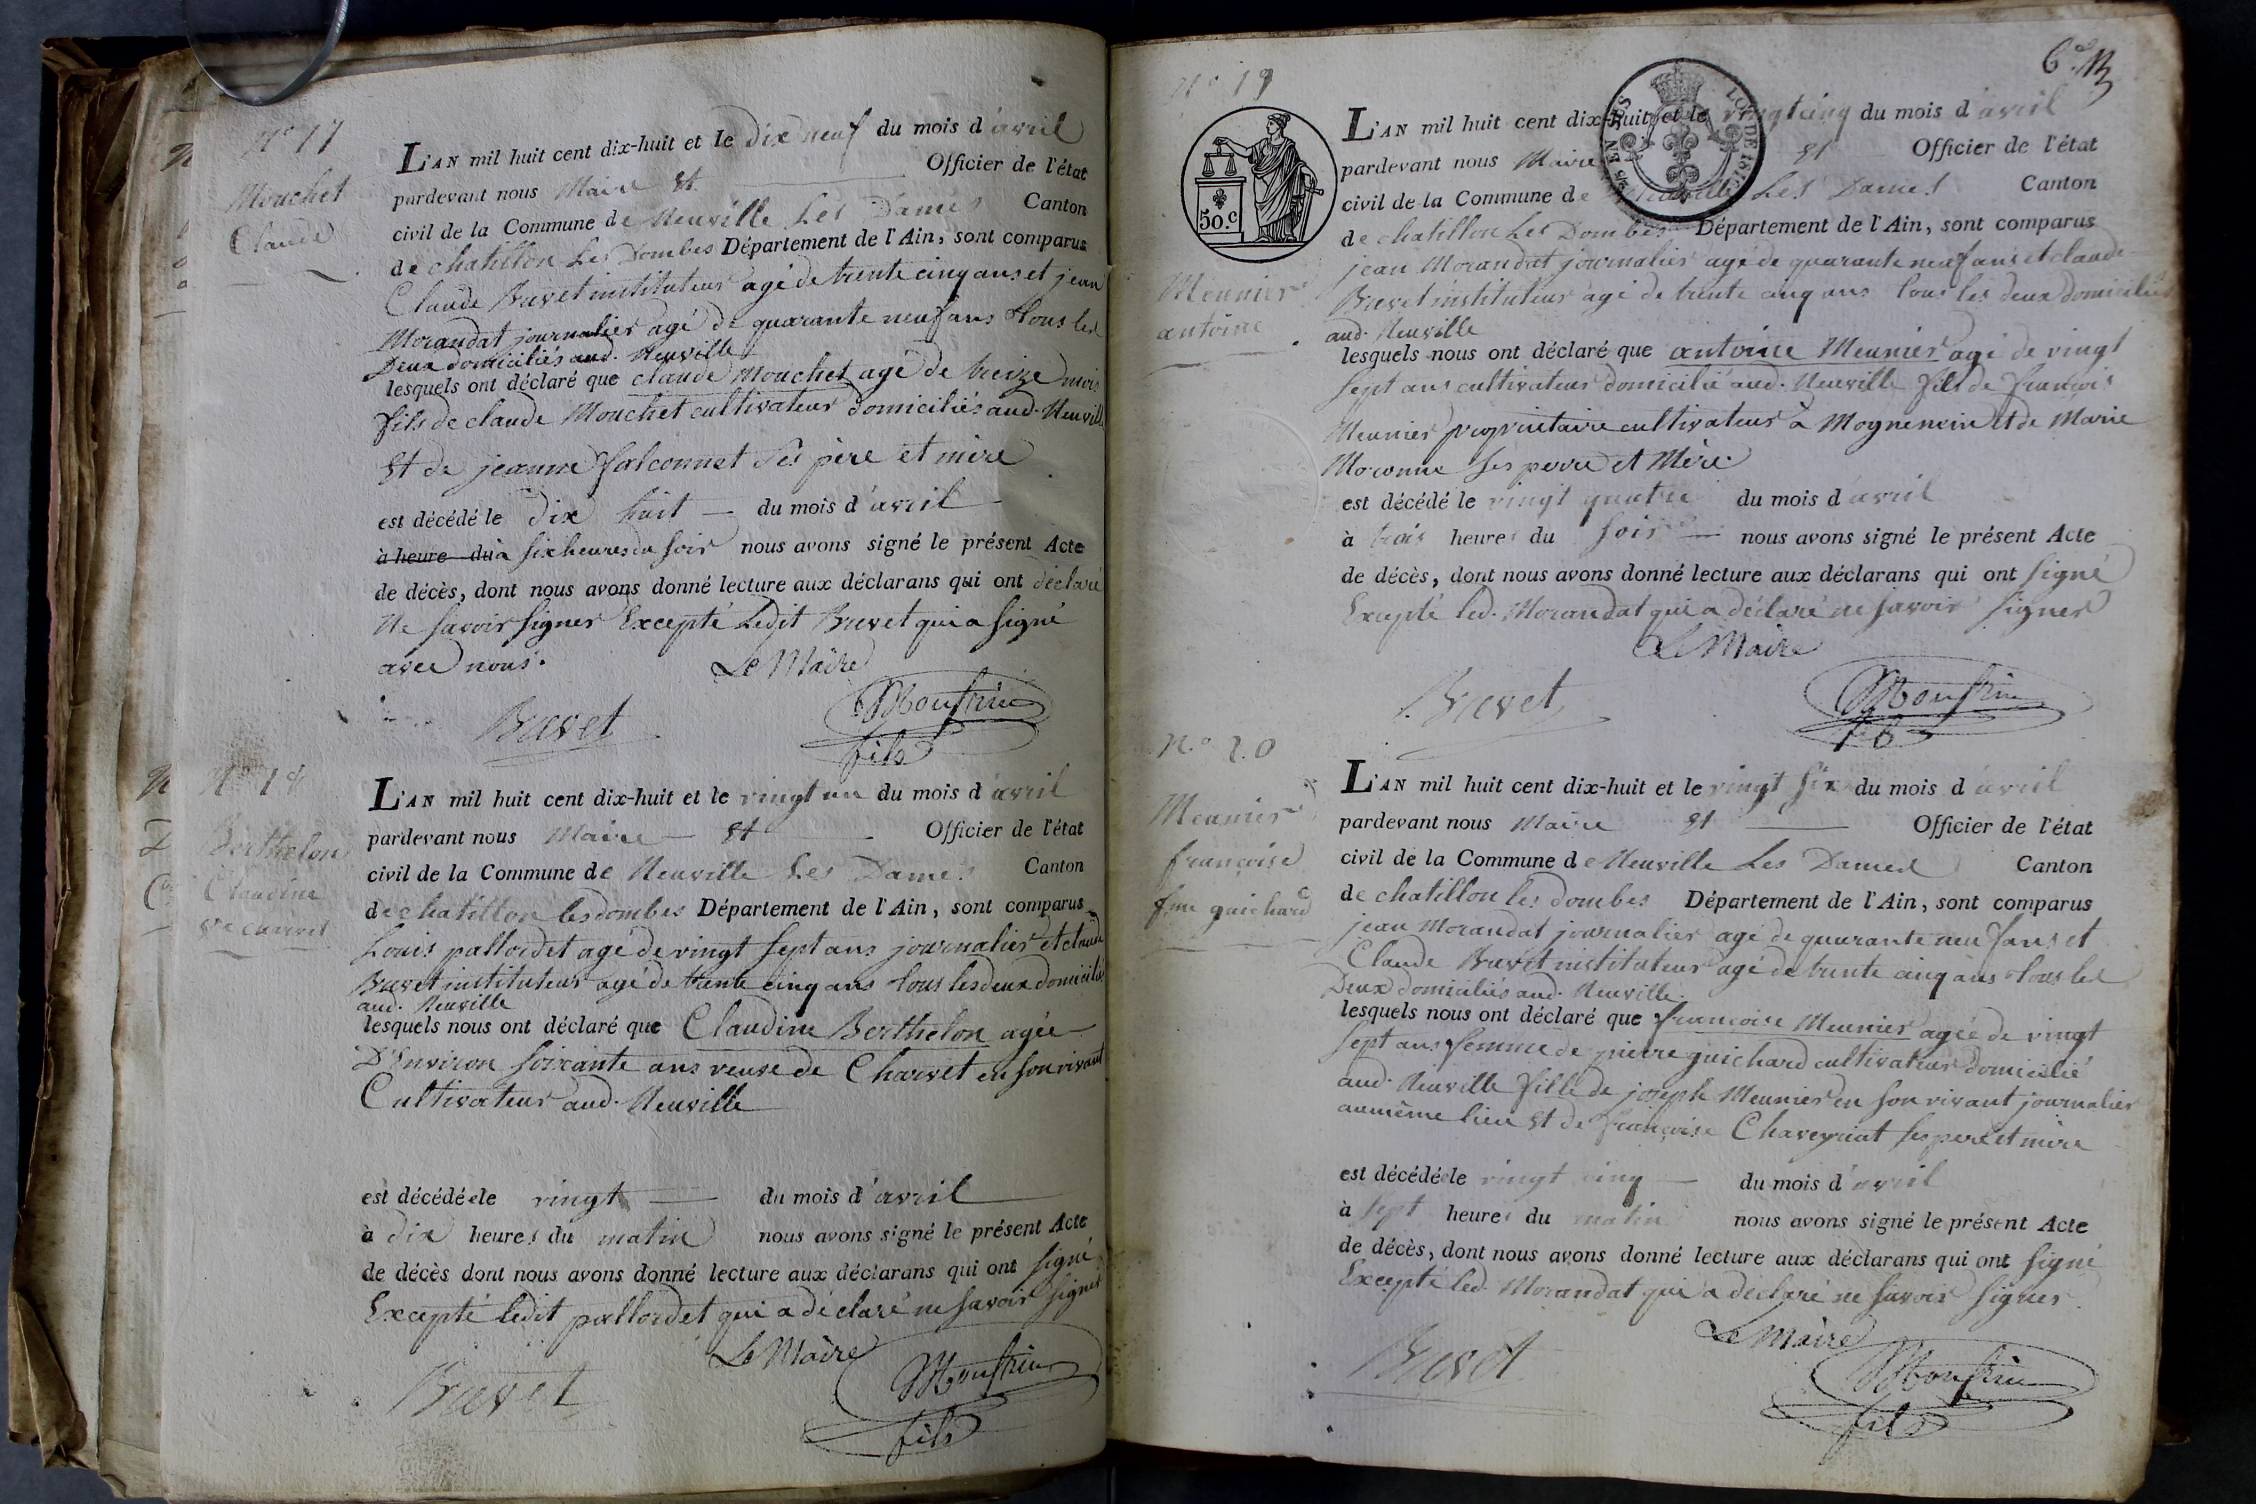 N° 17
Mouchet
Claude
L'AN mil huit cent dix-huit et le dix neuf du mois d'avril
pardevant nous Maire et Officier de l'état
civil de la Commune de Neuville Les Dames Canton
de chatillon Les Dombes Département de l'Ain, sont comparus
Claude Buvet instituteur agé de trente cinq ans et jean
Morandat journalier agé de quarante neuf ans tous les
Deux domiciliés aud. Neuville
lesquels ont déclaré que claude Mouchet agé de treize mois
fils de claude Mouchet cultivateur domiciliés aud. Neuville
et de jeanne falconnet Ses père et mère
est décédé le dix huit du mois d'avril
à heure du à six heures du soir nous avons signé le présent Acte
de décès, dont nous avons donné lecture aux déclarans qui ont déclaré
Ne savoir signer Excepté Ledit Buvet qui a signé
avec nous.
Le Maire
Buvet
fils
N° 18
Berthelon
Claudine
L'AN mil huit cent dix-huit et le vingt un du mois d'avril
pardevant nous Maire et Officier de l'état
civil de la Commune de Neuville Les Dames Canton
de chatillon les dombes Département de l'Ain, sont comparus
Louis pallordet agé de vingt sept ans journalier et claude
Buvet instituteur agé de trente cinq ans tous les deux domiciliés
aud. Neuville
lesquels nous ont déclaré que Claudine Berthelon agée
D'Environ soixante ans veuve de Charvet en son vivant
Cultivateur aud. Neuville
est décédée le vingt du mois d'avril
à dix heures du matin nous avons signé le présent Acte
de décès dont nous avons donné lecture aux déclarans qui ont signé
Excepté ledit pallordet qui a déclaré ne savoir signer
Le Maire
Buvet
fils
N° 19
50.c
Meunier
antoine
L'AN mil huit cent dix-huit et le vingt cinq du mois d'avril
pardevant nous Maire et Officier de l'état
civil de la Commune de Neuville Les Dames Canton
de chatillon Les Dombes Département de l'Ain, sont comparus
jean Morandat journalier agé de quarante neuf ans et claude
Buvet instituteur agé de trente cinq ans tous les deux domiciliés
aud. Neuville
lesquels nous ont déclaré que antoine Meunier agé de vingt
sept ans cultivateur domicilié aud. Neuville fils de françois
Meunier proprietaire cultivateur à Mognenein et de Marie
ses perre et Mère
est décédé le vingt quatre du mois d'avril
à trois heures du soir nous avons signé le présent Acte
de décès, dont nous avons donné lecture aux déclarans qui ont signé
Excepté led. Morandat qui a déclaré ne savoir signer
Le Maire
Buvet
N.° 20
Meunier
françoise
fme guichard
L'AN mil huit cent dix-huit et le vingt six du mois d'avril
pardevant nous Maire et Officier de l'état
civil de la Commune de Neuville Les Dames Canton
de chatillon les dombes Département de l'Ain, sont comparus
jean Morandat journalier agé de quarante neuf ans et
Claude Buvet instituteur agé de trente cinq ans tous les
Deux domiciliés aud. Neuville.
lesquels nous ont déclaré que françoise Meunier agée de vingt
sept ans femme de pierre guichard cultivateur domicilié
aud. Neuville fille de joseph Meunier en son vivant journalier
aumême lieu et de françoise Chaveyriat ses pere et mère
est décédée le vingt cinq du mois d'avril
à sept heures du matin nous avons signé le présent Acte
de décès, dont nous avons donné lecture aux déclarans qui ont signé
Excepté led. Morandat qui a déclaré ne savoir signer
Le Maire
Buvet
fils